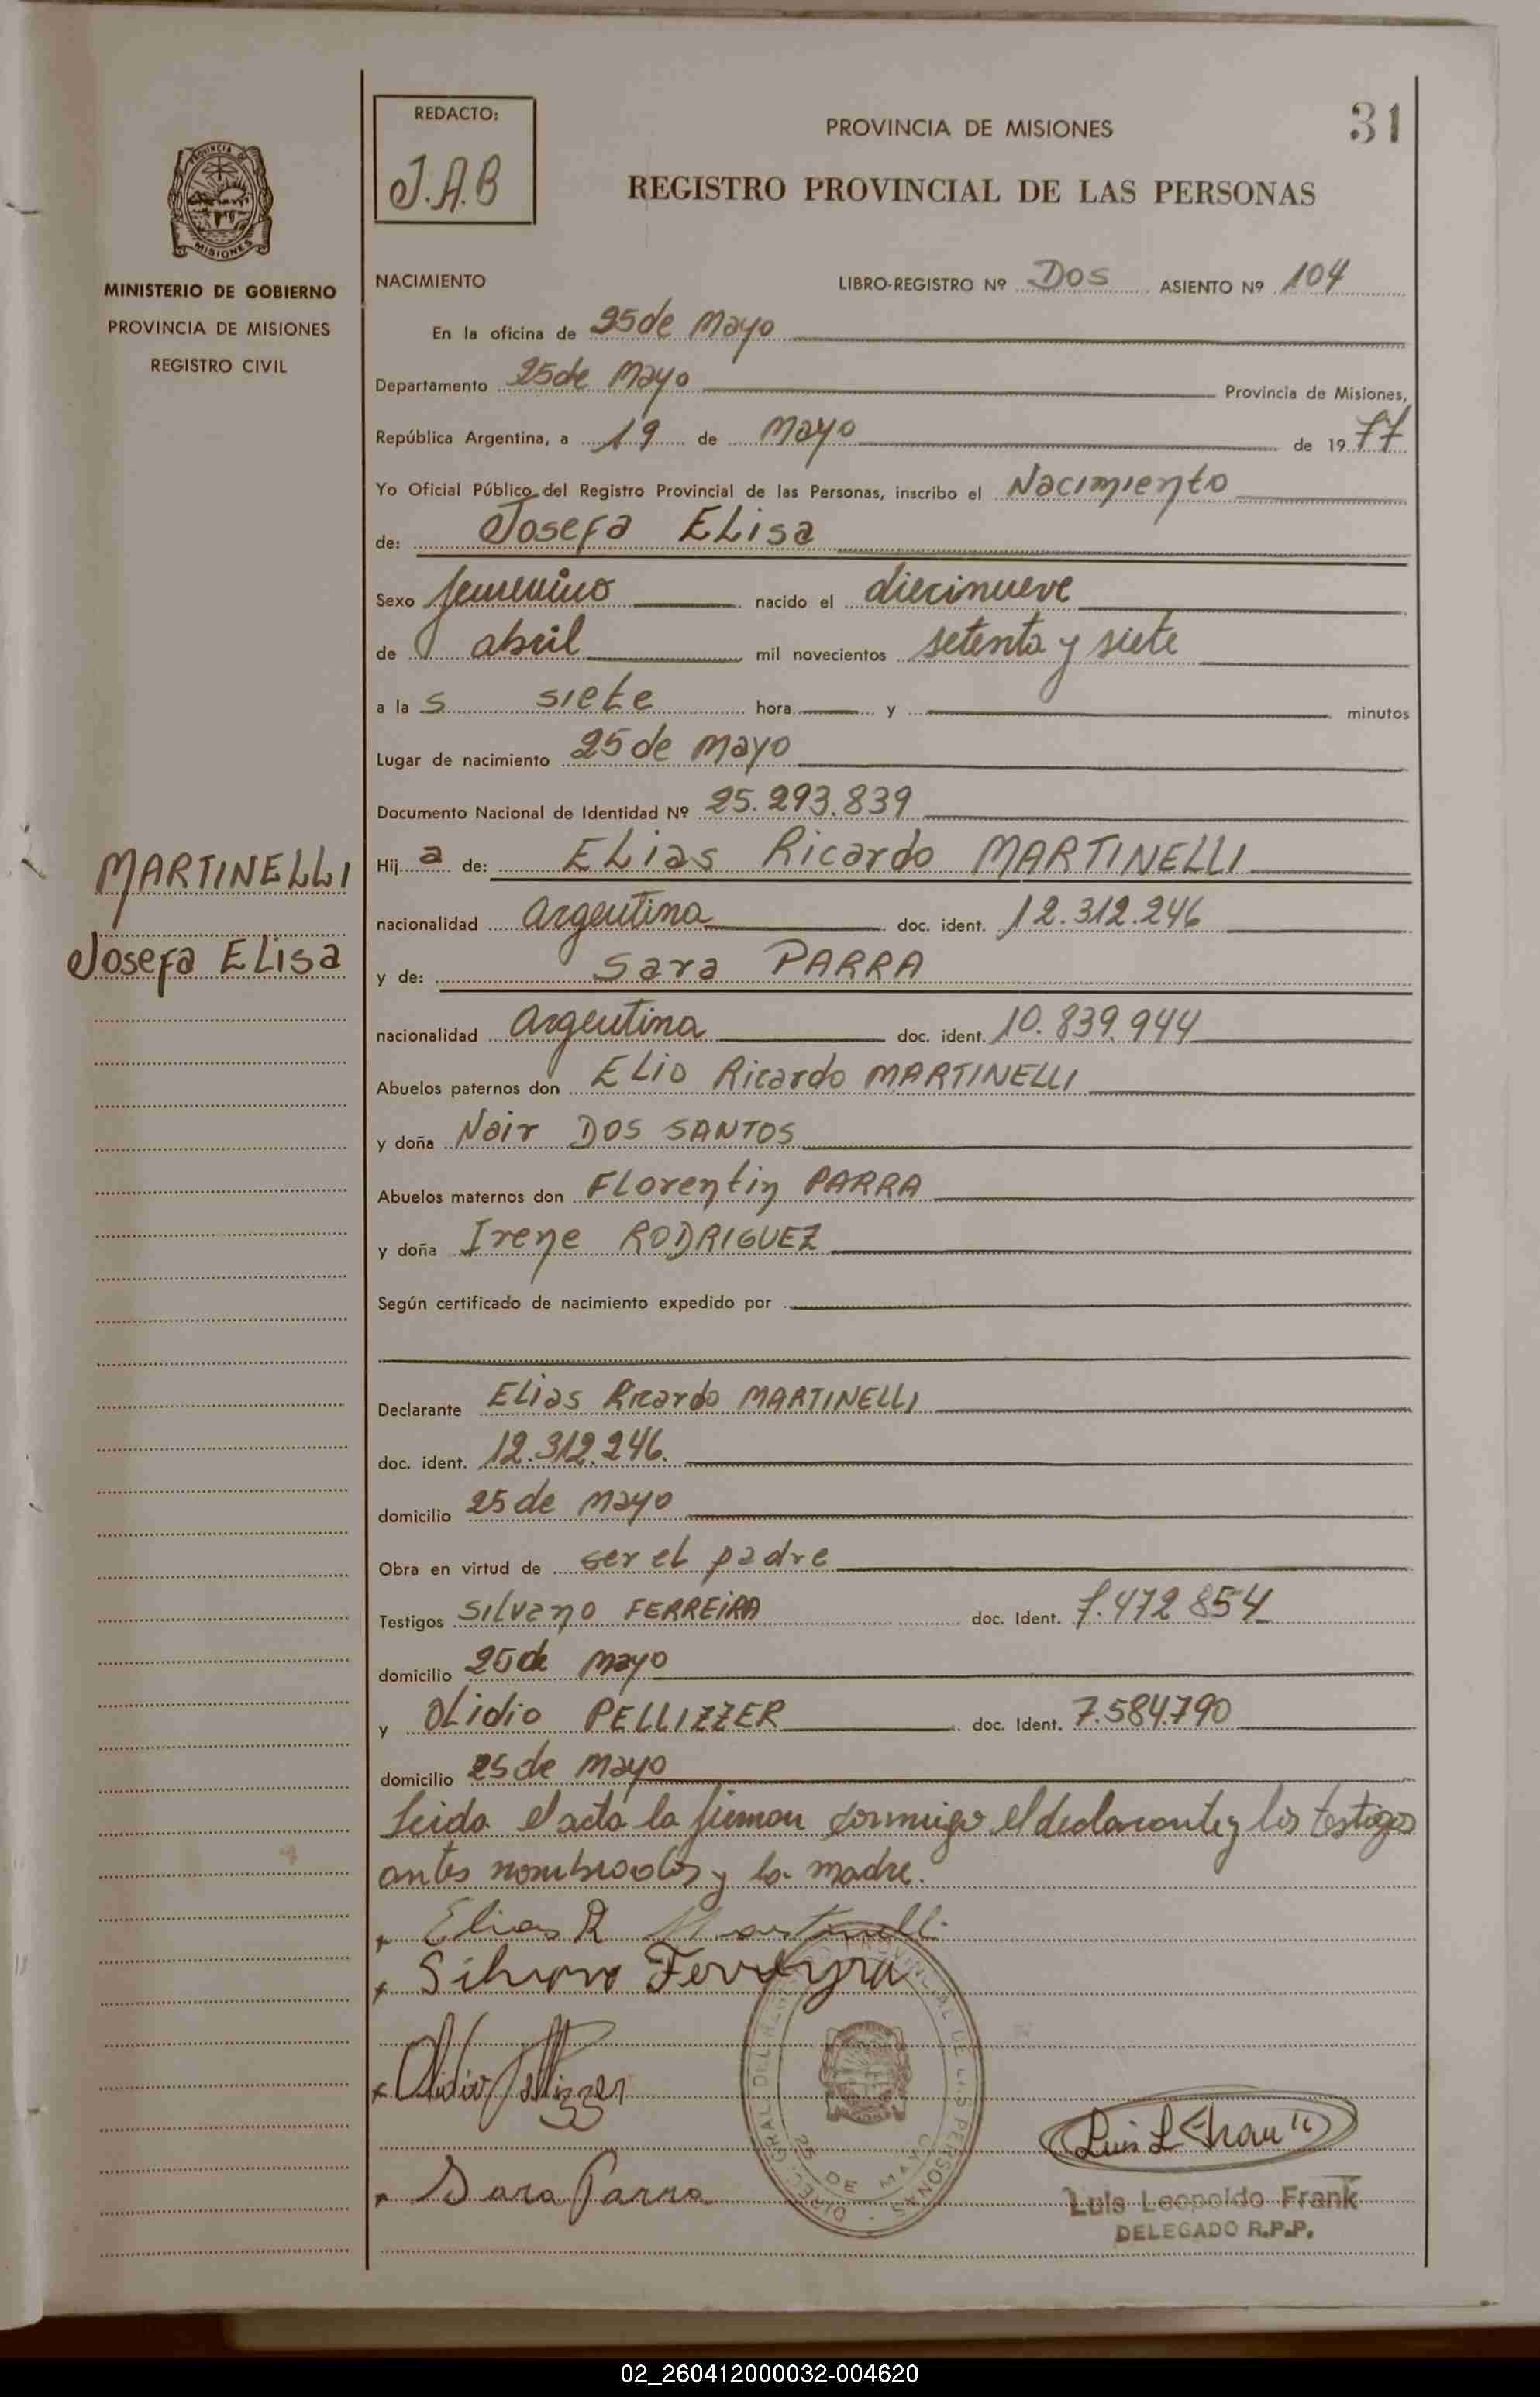 REDACTO:
J.A.B
PROVINCIA DE MISIONES
31
REGISTRO PROVINCIAL DE LAS PERSONAS
PROVINCIA DE
MISIONES
MINISTERIO DE GOBIERNO
PROVINCIA DE MISIONES
REGISTRO CIVIL
NACIMIENTO LIBRO-REGISTRO Nº DOS ASIENTO Nº 104
En la oficina de 25 de Mayo
Departamento 25 de Mayo Provincia de Misiones,
República Argentina, a 19 de Mayo de 1977
Yo Oficial Público del Registro Provincial de las Personas, inscribo el Nacimiento
de: Josefa ELisa
Sexo femenino nacido el diecinueve
de abril mil novecientos setenta y siete
a las siete hora y minutos
Lugar de nacimiento 25 de Mayo
Documento Nacional de Identidad Nº 25.293.839
MARTINELLI
Josefa ELisa
Hija de: ELias Ricardo MARTINELLI
nacionalidad Argentina doc. ident. 12.312.246
y de: Sara PARRA
nacionalidad Argentina doc. ident. 10.839.944
Abuelos paternos don ELio Ricardo MARTINELLI
y doña Nair DOS SANTOS
Abuelos maternos don FLorentin PARRA
y doña Irene RODRIGUEZ
Según certificado de nacimiento expedido por
Declarante ELias Ricardo MARTINELLI
doc. ident. 12.312.246.
domicilio 25 de Mayo
Obra en virtud de ser el padre
Testigos SiLvano FERREiRA doc. Ident. 7.472 854
domicilio 25 de Mayo
y oLidio PELLIZZER doc. Ident. 7.584.790
domicilio 25 de Mayo
Leida el acta la firman conmigo el declarante y los testigos
antes nombrados y la madre.
Elias R Martinelli
Silvano Ferreyra
Olidio Pellizzer
Sara Parra
DIREC. GRAL. DEL REGISTRO PROVINCIAL DE LAS PERSONAS
25 DE MAYO
Luis L Frank
Luis Leopoldo Frank
DELEGADO R.P.P.
02_260412000032-004620